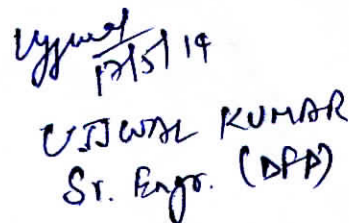 Ujjwal
17/5/19
UJJWAL KUMAR
Sr. Engr. (DPP)